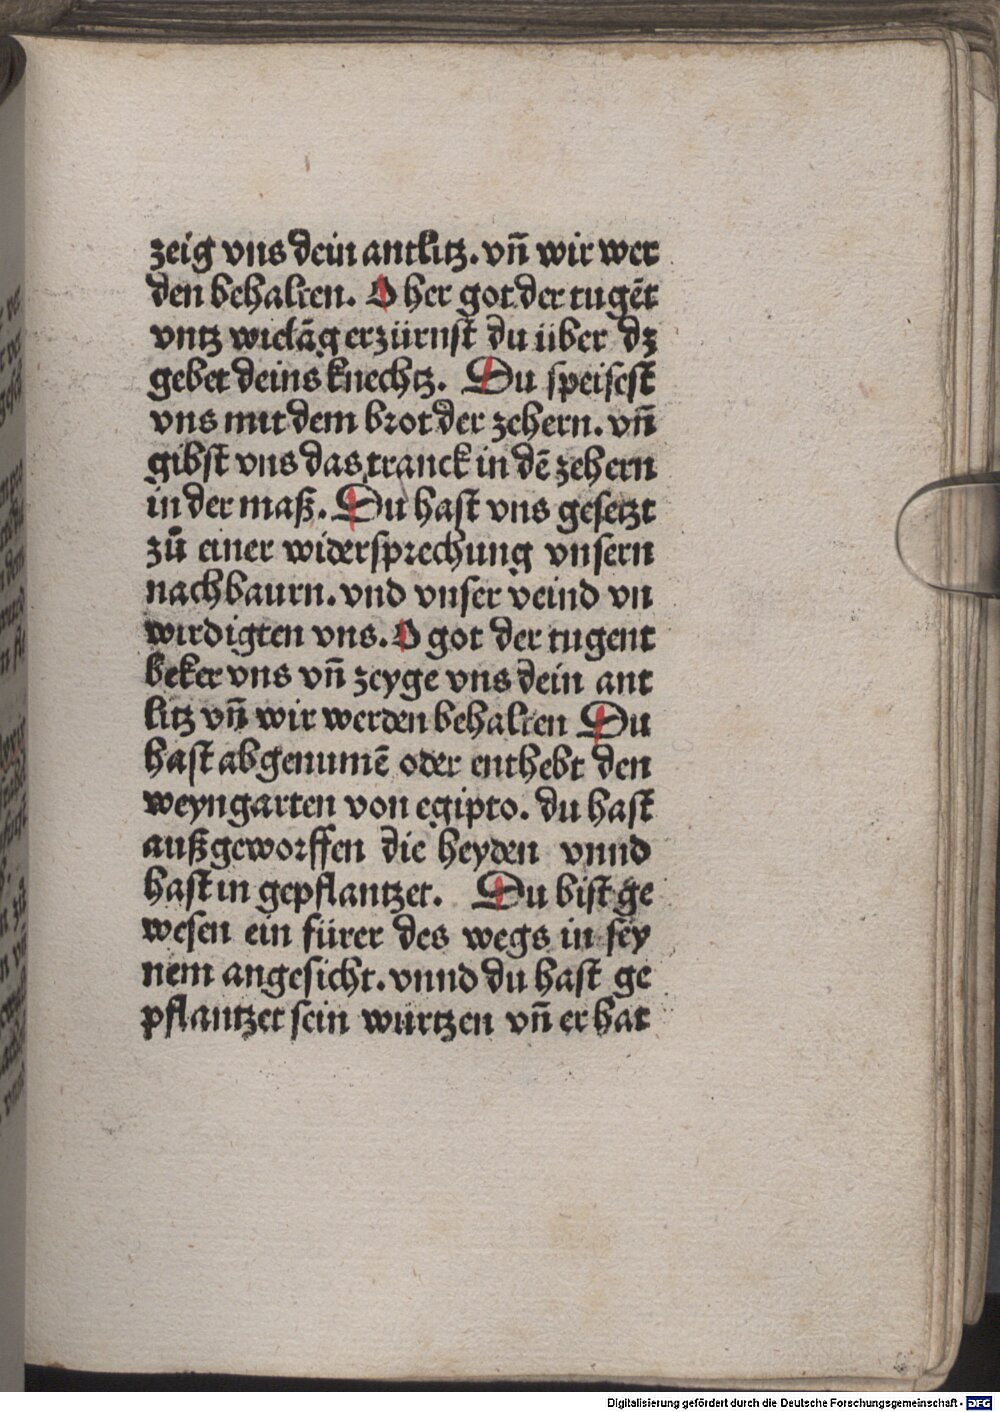 zeig vns dein antlitz. vn̄ wir wer
den behalten. O her got der tugēt
vntz wielāg erzürnst du über dz
gebet deins knechtz. Du speisest
vns mit dem brot der zehern. vn̄
gibst vns das tranck in dē zehern
in der maß. Du hast vns gesetzt
zů einer widersprechung vnsern
nachbaurn. vnd vnser veind vn
wirdigten vns. O got der tugent
beker vns vn̄ zeyge vns dein ant
litz vn̄ wir werden behalten Du
hast abgenumē oder enthebt den
weyngarten von egipto. du hast
außgeworffen die heyden vnnd
hast in gepflantzet. Du bist ge
wesen ein fürer des wegs in sey
nem angesicht. vnnd du hast ge
pflantzet sein wurtzen vn̄ er hat
Digitalisierung gefördert durch die Deutsche Forschungsgemeinschaft - DFG